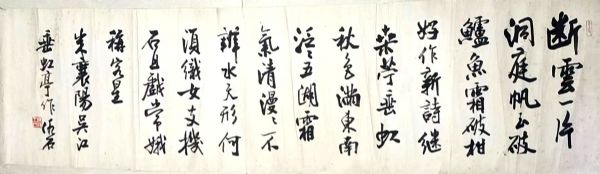 断雲一片
洞庭帆玉破
鱸魚霜破柑
好作新詩継
桑苧垂虹
秋色滿東南
泛〻五湖霜
氣清漫〻不
辨水天形何
須織女支機
石且戲常娥
稱客星
米襄陽吴江
垂虹亭作